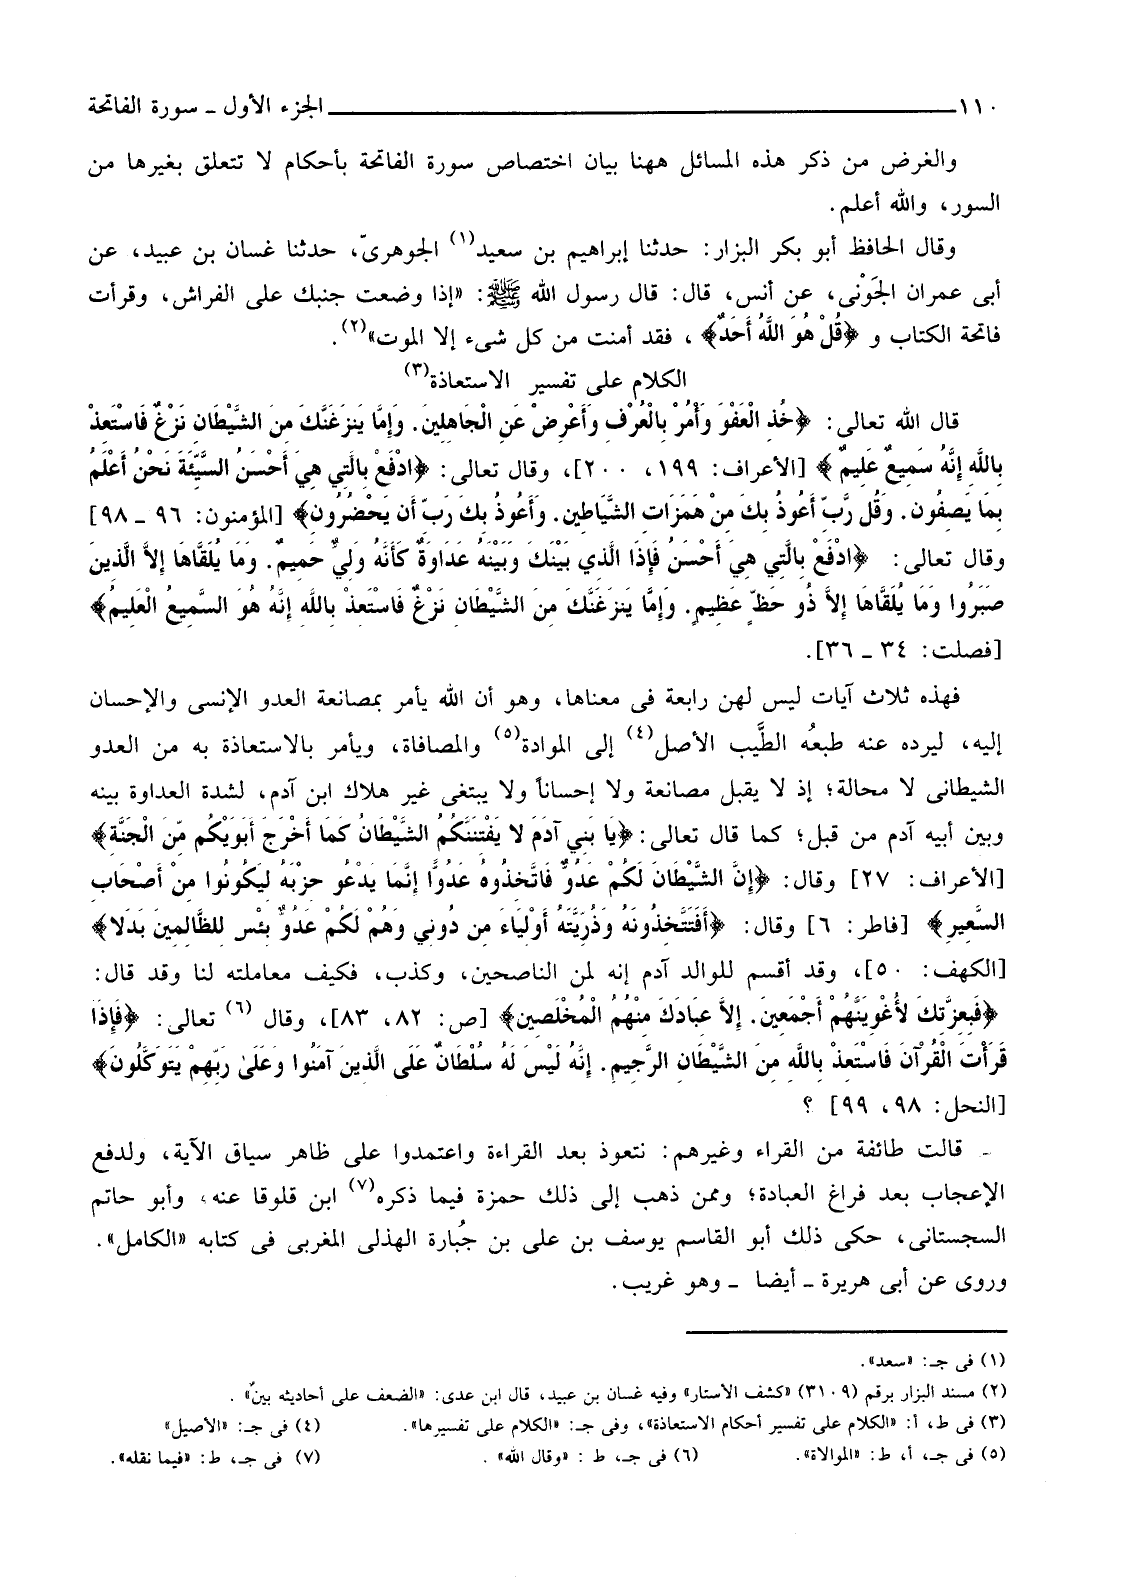 ١١٠ ـــــــــ الجزء الأول ـ سورة الفاتحة
والغرض من ذكر هذه المسائل ههنا بيان اختصاص سورة الفاتحة بأحكام لا تتعلق بغيرها من
السور، والله أعلم.
وقال الحافظ أبو بكر البزار: حدثنا إبراهيم بن سعيد(١) الجوهرىّ، حدثنا غسان بن عبيد، عن
أبى عمران الجَوْنى، عن أنس، قال: قال رسول الله ﷺ: «إذا وضعت جنبك على الفراش، وقرأت
فاتحة الكتاب و ﴿قُلْ هُوَ اللَّهُ أَحَدٌ﴾ ، فقد أمنت من كل شىء إلا الموت»(٢).
الكلام على تفسير الاستعاذة(٣)
قال الله تعالى: ﴿خُذِ الْعَفْوَ وَأْمُرْ بِالْعُرْفِ وَأَعْرِضْ عَنِ الْجَاهِلِينَ. وَإِمَّا يَنزَغَنَّكَ مِنَ الشَّيْطَانِ نَزْغٌ فَاسْتَعِذْ
بِاللَّهِ إِنَّهُ سَمِيعٌ عَلِيمٌ﴾ [الأعراف: ١٩٩، ٢٠٠]، وقال تعالى: ﴿ادْفَعْ بِالَّتِي هِيَ أَحْسَنُ السَّيِّئَةَ نَحْنُ أَعْلَمُ
بِمَا يَصِفُون. وَقُل رَّبِّ أَعُوذُ بِكَ مِنْ هَمَزَاتِ الشَّيَاطِين. وَأَعُوذُ بِكَ رَبِّ أَن يَحْضُرُون﴾ [المؤمنون: ٩٦ ـ ٩٨]
وقال تعالى: ﴿ادْفَعْ بِالَّتِي هِيَ أَحْسَنُ فَإِذَا الَّذِي بَيْنَكَ وَبَيْنَهُ عَدَاوَةٌ كَأَنَّهُ وَلِيٌّ حَمِيمٌ. وَمَا يُلَقَّاهَا إِلاَّ الَّذِينَ
صَبَرُوا وَمَا يُلَقَّاهَا إِلاَّ ذُو حَظٍّ عَظِيمٍ. وَإِمَّا يَنزَغَنَّكَ مِنَ الشَّيْطَانِ نَزْغٌ فَاسْتَعِذْ بِاللَّهِ إِنَّهُ هُوَ السَّمِيعُ الْعَلِيمُ﴾
[فصلت: ٣٤ ـ ٣٦].
فهذه ثلاث آيات ليس لهن رابعة فى معناها، وهو أن الله يأمر بمصانعة العدو الإنسى والإحسان
إليه، ليرده عنه طبعُه الطَّيب الأصل(٤) إلى الموادة(٥) والمصافاة، ويأمر بالاستعاذة به من العدو
الشيطانى لا محالة؛ إذ لا يقبل مصانعة ولا إحساناً ولا يبتغى غير هلاك ابن آدم، لشدة العداوة بينه
وبين أبيه آدم من قبل؛ كما قال تعالى: ﴿يَا بَنِي آدَمَ لا يَفْتِنَنَّكُمُ الشَّيْطَانُ كَمَا أَخْرَجَ أَبَوَيْكُم مِّنَ الْجَنَّةِ﴾
[الأعراف: ٢٧] وقال: ﴿إِنَّ الشَّيْطَانَ لَكُمْ عَدُوٌّ فَاتَّخِذُوهُ عَدُوًّا إِنَّمَا يَدْعُو حِزْبَهُ لِيَكُونُوا مِنْ أَصْحَابِ
السَّعِيرِ﴾ [فاطر: ٦] وقال: ﴿أَفَتَتَّخِذُونَهُ وَذُرِّيَّتَهُ أَوْلِيَاءَ مِن دُونِي وَهُمْ لَكُمْ عَدُوٌّ بِئْسَ لِلظَّالِمِينَ بَدَلا﴾
[الكهف: ٥٠]، وقد أقسم للوالد آدم إنه لمن الناصحين، وكذب، فكيف معاملته لنا وقد قال:
﴿فَبِعِزَّتِكَ لأُغْوِيَنَّهُمْ أَجْمَعِينَ. إِلاَّ عِبَادَكَ مِنْهُمُ الْمُخْلَصِين﴾ [ص: ٨٢، ٨٣]، وقال (٦) تعالى: ﴿فَإِذَا
قَرَأْتَ الْقُرْآنَ فَاسْتَعِذْ بِاللَّهِ مِنَ الشَّيْطَانِ الرَّجِيمِ. إِنَّهُ لَيْسَ لَهُ سُلْطَانٌ عَلَى الَّذِينَ آمَنُوا وَعَلَىٰ رَبِّهِمْ يَتَوَكَّلُون﴾
[النحل: ٩٨، ٩٩] ؟
ـ قالت طائفة من القراء وغيرهم: نتعوذ بعد القراءة واعتمدوا على ظاهر سياق الآية، ولدفع
الإعجاب بعد فراغ العبادة؛ وممن ذهب إلى ذلك حمزة فيما ذكره(٧) ابن قلوقا عنه، وأبو حاتم
السجستانى، حكى ذلك أبو القاسم يوسف بن على بن جُبارة الهذلى المغربى فى كتابه «الكامل».
وروى عن أبى هريرة ـ أيضا ـ وهو غريب.
(١) فى جـ: «سعد».
(٢) مسند البزار برقم (٣١٠٩) «كشف الأستار» وفيه غسان بن عبيد، قال ابن عدى: «الضعف على أحاديثه بينٌ» .
(٣) فى ط، أ: «الكلام على تفسير أحكام الاستعاذة»، وفى جـ: «الكلام على تفسيرها». (٤) فى جـ: «الأصيل»
(٥) فى جـ، أ، ط: «الموالاة». (٦) فى جـ، ط : «وقال الله» . (٧) فى جـ، ط: «فيما نقله».